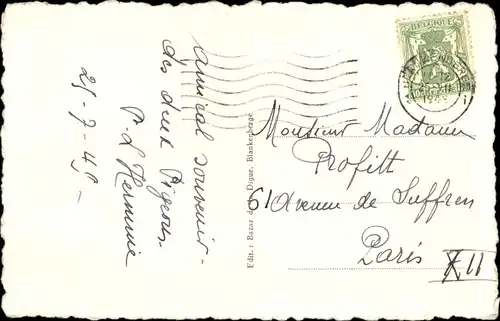 amical souvenir -
des deux Pigeons.
P. L Hermine
25-7-49 -
Edit.: Bazar de la Digue, Blankenberge
BELGIQUE
Monsieur Madame
Profitt
61 Avenue de Suffren
Paris XII